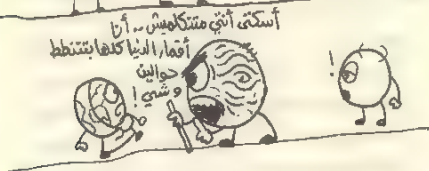 أسكتى أنتي متتكلميش .. أنا
أقمار الدنيا كلها بتتنطط
حوالين
وشي !
!